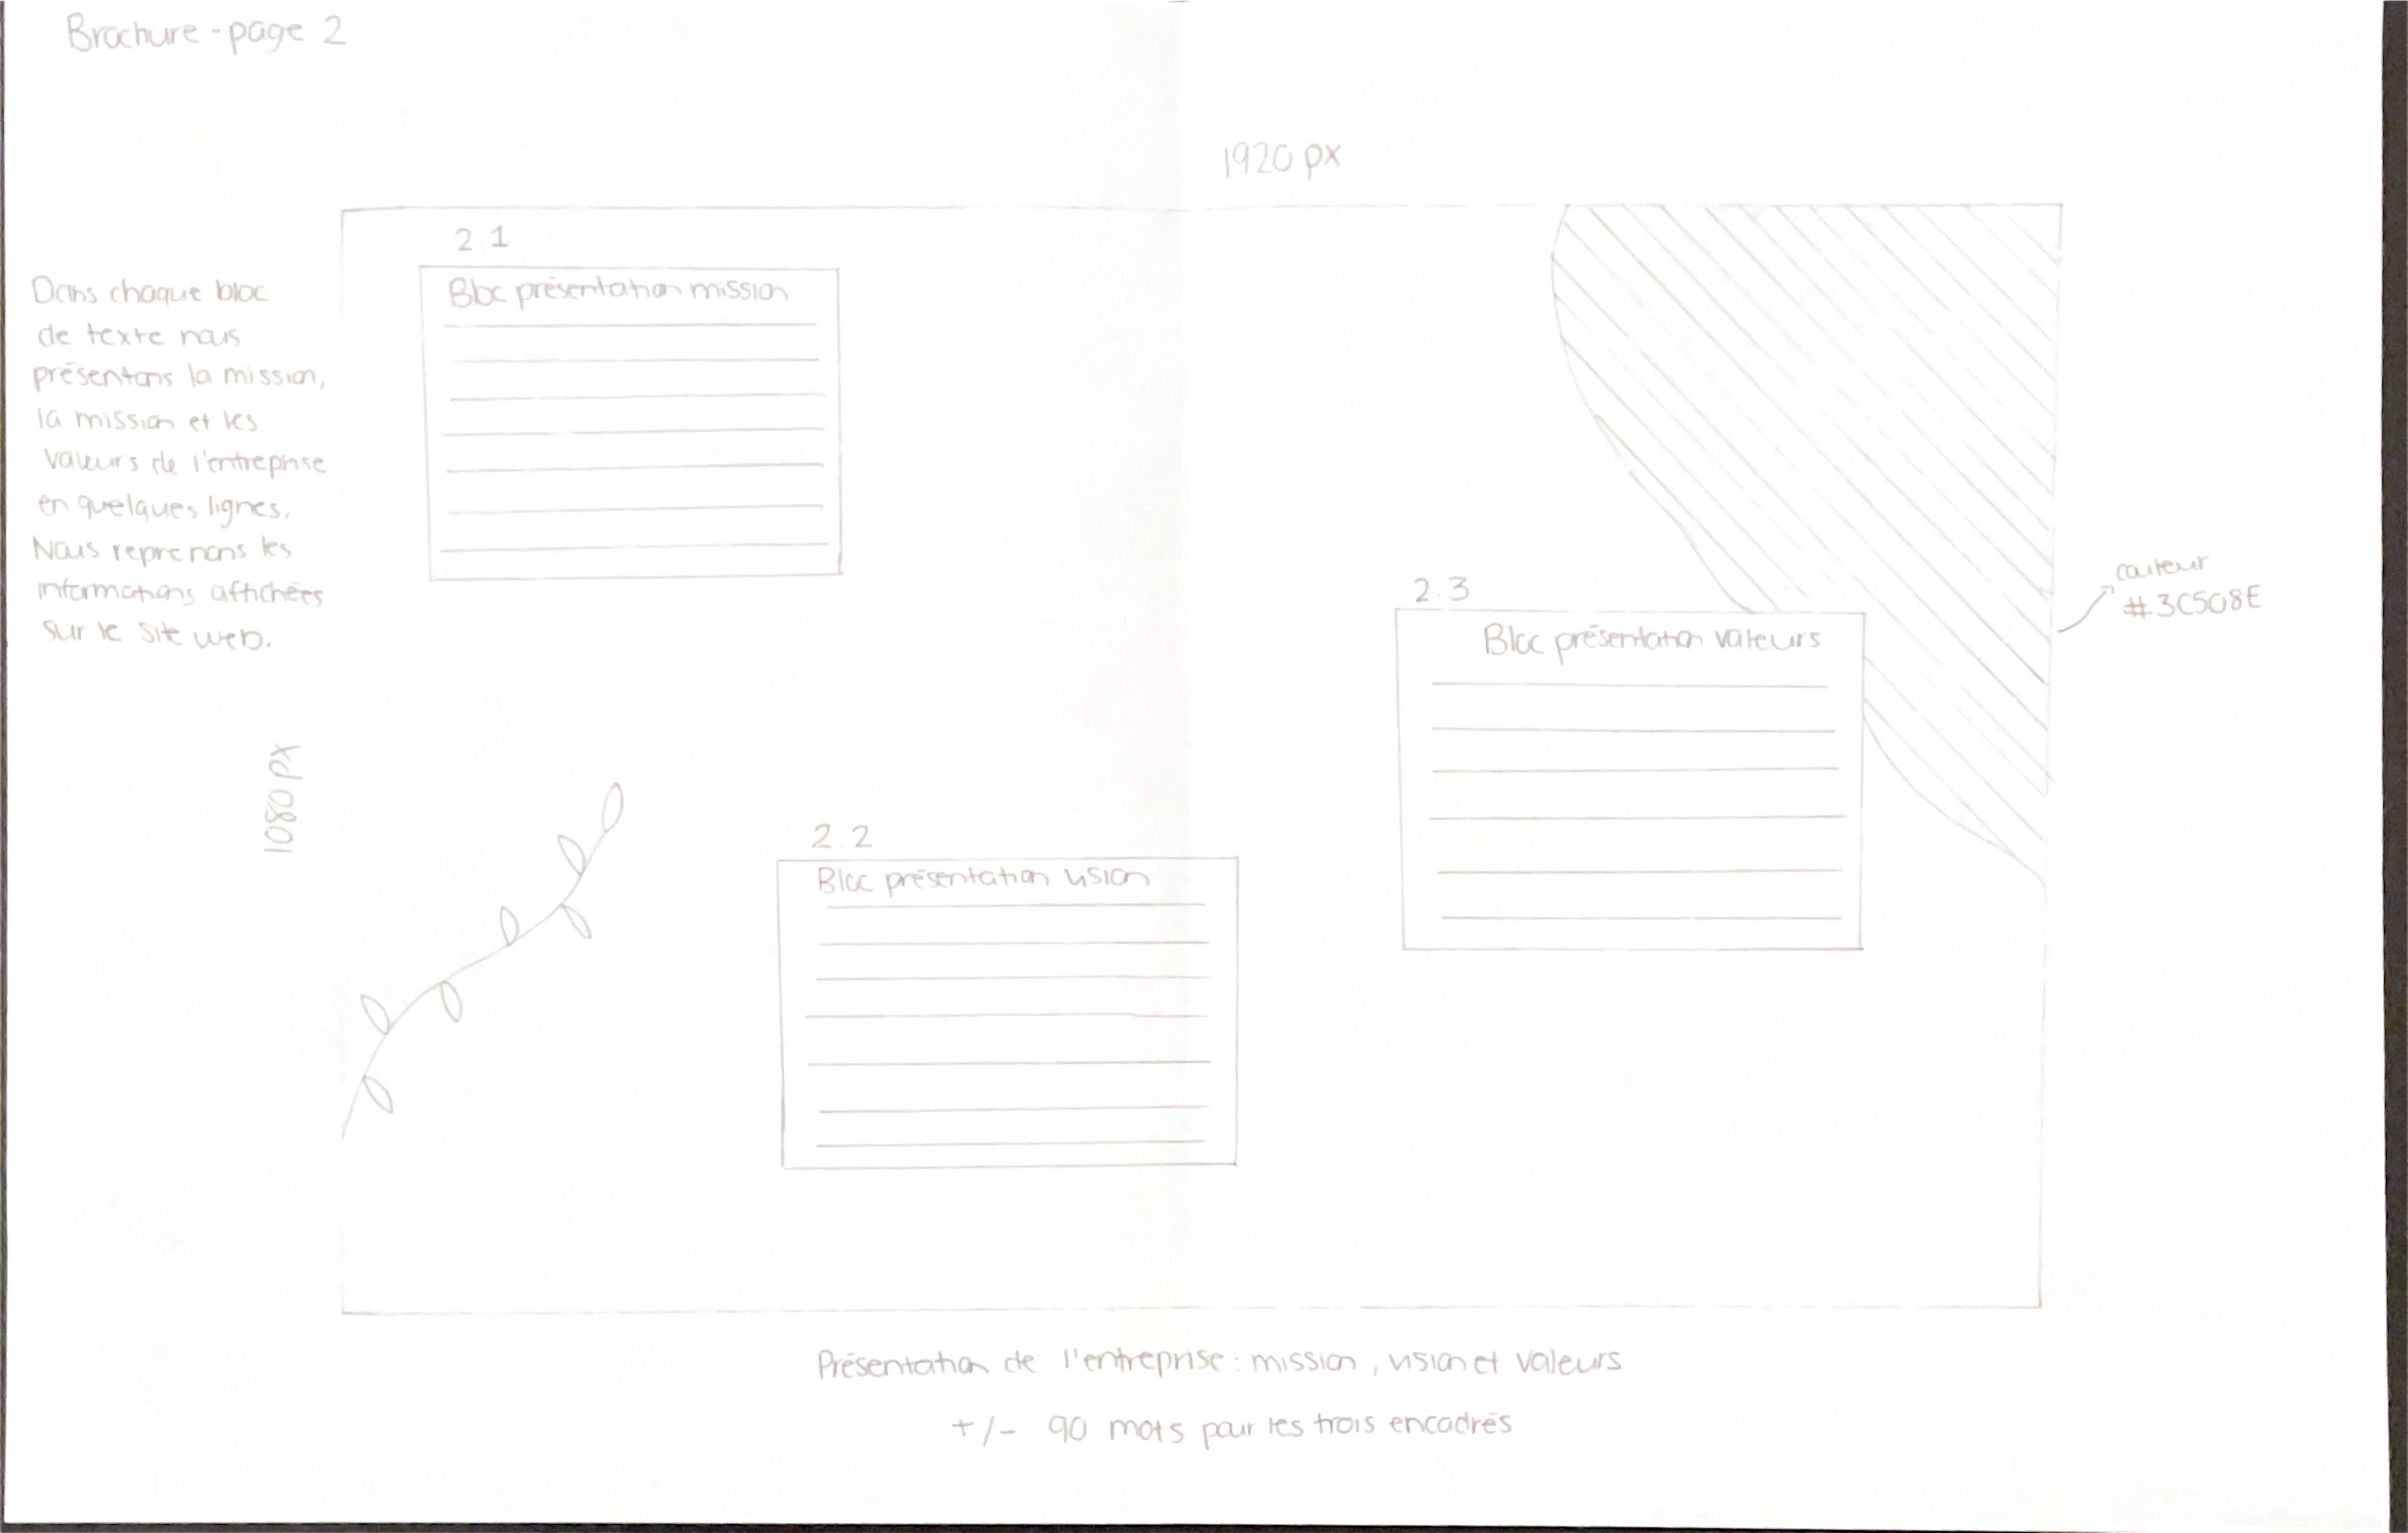 Brochure - page 2
1920 px
Dans chaque bloc
de texte nous
présentons la mission,
la mission et les
valeurs de l'entreprise
en quelques lignes.
Nous reprenons les
informations affichées
sur le site web.
1080 px
2.1
Bloc présentation mission
2.2
Bloc présentation vision
2.3
Bloc présentation valeurs
couleur
#3C508E
Présentation de l'entreprise : mission, vision et valeurs
+/- 90 mots pour les trois encadrés